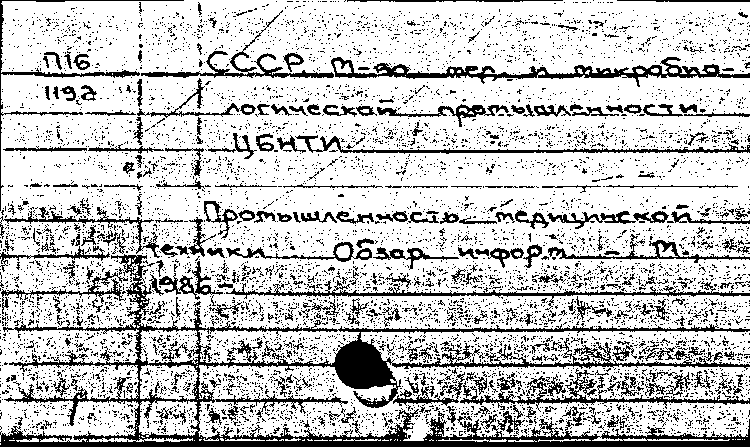 П16 СССР. М-во мед. и микробио-
1192 логической промышленности.
ЦБНТИ.
Промышленность медицинской
техники. Обзор. информ. - М.,
1986 -